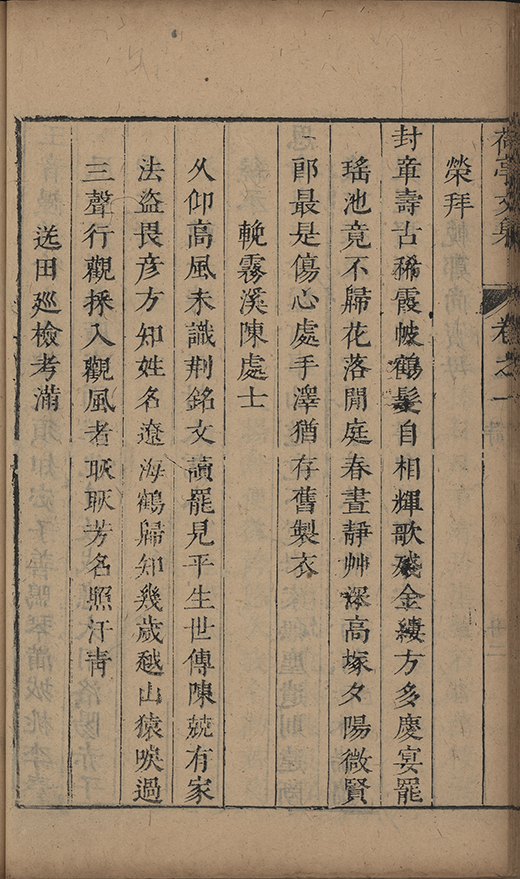 荷亭文集 卷之一
榮拜
封章壽古稀霞帔鶴髮自相輝歌殘金縷方多慶宴罷
瑶池竟不歸花落閒庭春晝靜艸深高塚夕陽微賢
郎最是傷心處手澤猶存舊製衣
輓霧溪陳處士
久仰高風未識荆銘文讀罷見平生世傳陳兢有家
法盜畏彦方知姓名遼海鶴歸知幾歲越山猿唳過
三聲行觀採入觀風者耿耿芳名照汗青
送田廵檢考滿